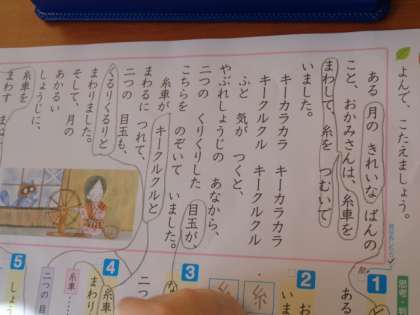 よんで、こたえましょう。
ある 月の きれいな ばんの
こと、おかみさんは、糸車を
まわして、糸を つむいで
いました。
キーカラカラ キーカラカラ
キークルクル キークルクル
ふと 気が つくと、
やぶれしょうじの あなから、
二つの くりくりした 目玉が、
こちらを のぞいて いました。
糸車が キークルクルと
まわるに つれて、
二つの 目玉も、
くるりくるりと
まわりました。
そして、月の
あかるい
しょうじに、
糸車を
まわす まね
思考・判
1
ある
2
糸
いま
3
な
二つ
4
糸車
まわり
糸車
二つの 目
5
しょう